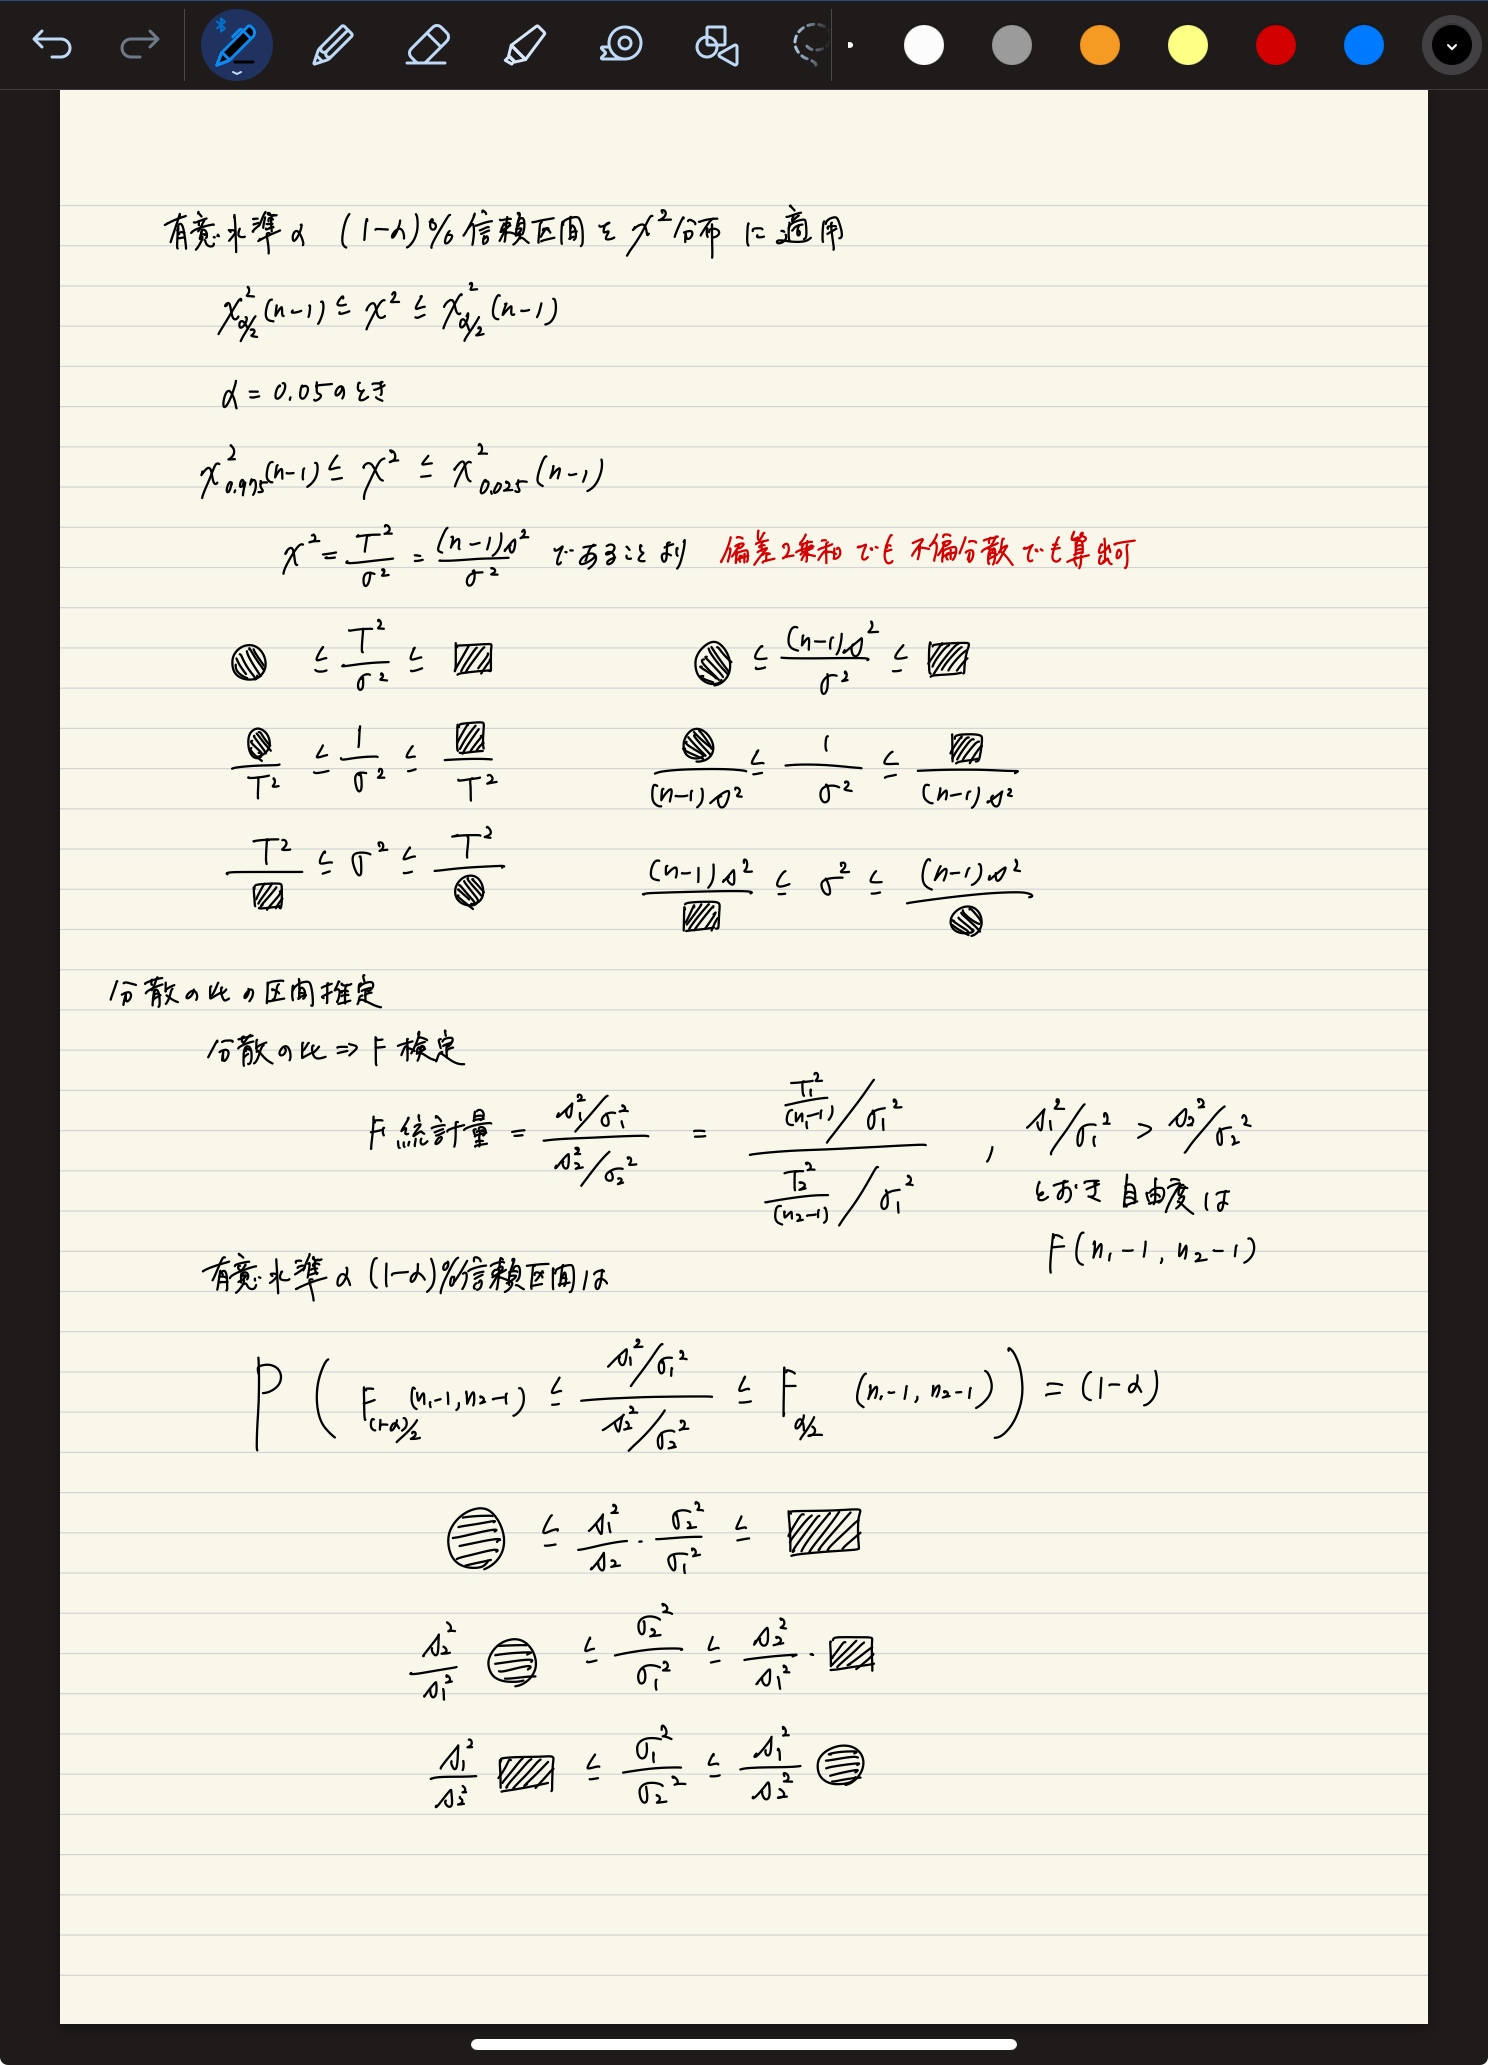 有意水準α (1-α)%信頼区間を χ²分布 に適用
χ²α/2(n-1) ≤ χ² ≤ χ²α/2(n-1)
α = 0.05のとき
χ²0.975(n-1) ≤ χ² ≤ χ²0.025(n-1)
χ² = T²/σ² = (n-1)s²/σ² であることより 偏差2乗和でも 不偏分散でも算出可
≤ T²/σ² ≤ ≤ (n-1)s²/σ² ≤
/T² ≤ 1/σ² ≤ /T² /(n-1)s² ≤ 1/σ² ≤ /(n-1)s²
T²/ ≤ σ² ≤ T²/ (n-1)s²/ ≤ σ² ≤ (n-1)s²/
分散の比の区間推定
分散の比 ⇒ F 検定
F 統計量 = (s₁²/σ₁²)/(s₂²/σ₂²) = (T₁²/(n₁-1)/σ₁²)/(T₂²/(n₂-1)/σ₁²) , s₁²/σ₁² > s₂²/σ₂²
とおき 自由度は
F(n₁-1, n₂-1)
有意水準α (1-α)%信頼区間は
P( F(1-α)/2 (n₁-1, n₂-1) ≤ (s₁²/σ₁²)/(s₂²/σ₂²) ≤ Fα/2 (n₁-1, n₂-1) ) = (1-α)
≤ s₁²/s₂ · σ₂²/σ₁² ≤
s₂²/s₁² ≤ σ₂²/σ₁² ≤ s₂²/s₁² ·
s₁²/s₂² ≤ σ₁²/σ₂² ≤ s₁²/s₂²